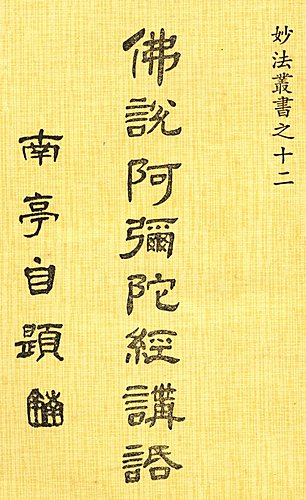 妙法叢書之十二
佛說阿彌陀經講話
南亭自題